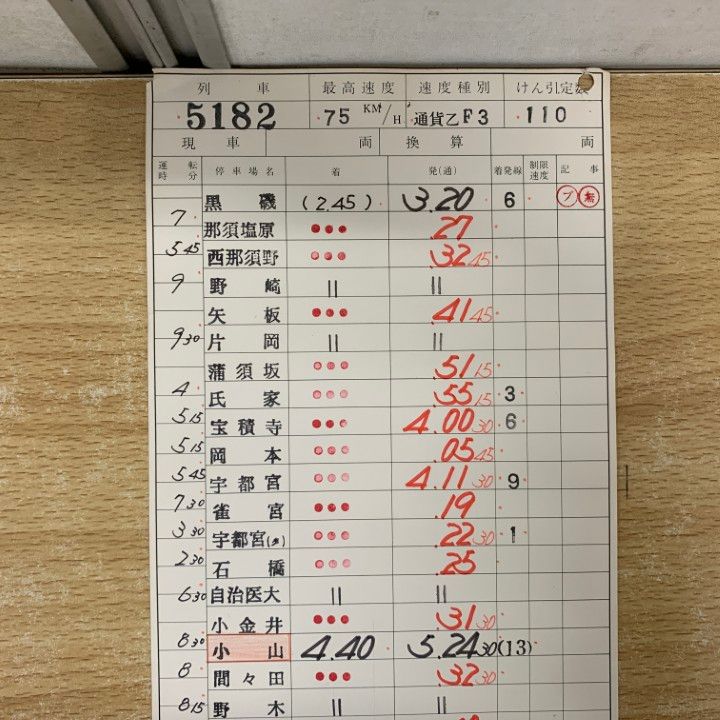 列 車 最高速度 速度種別 けん引定数
5182 75 KM/H 通貨乙F3 110
現車 両 換算 両
運転時分 停車場名 着 発(通) 着発線 制限速度 記事
黒磯 (2.45) 3.20 6 ブ 無
7
那須塩原 ●●● .27
5 45
西那須野 ●●● .32 45
9
野崎 || ||
矢板 ●●● .41 45
9 30
片岡 || ||
蒲須坂 ●●● .51 15
4
氏家 ●●● .55 15 3
5 15
宝積寺 ●●● 4.00 30 6
5 15
岡本 ●●● .05 45
5 45
宇都宮 ●●● 4.11 30 9
7 30
雀宮 ●●● .19
3 30
宇都宮(タ) ●●● .22 30 1
2 30
石橋 ●●● .25
6 30
自治医大 || ||
小金井 ●●● .31 30
8 30
小山 4.40 5.24 30 (13)
8
間々田 ●●● .32 30
8 15
野木 || ||